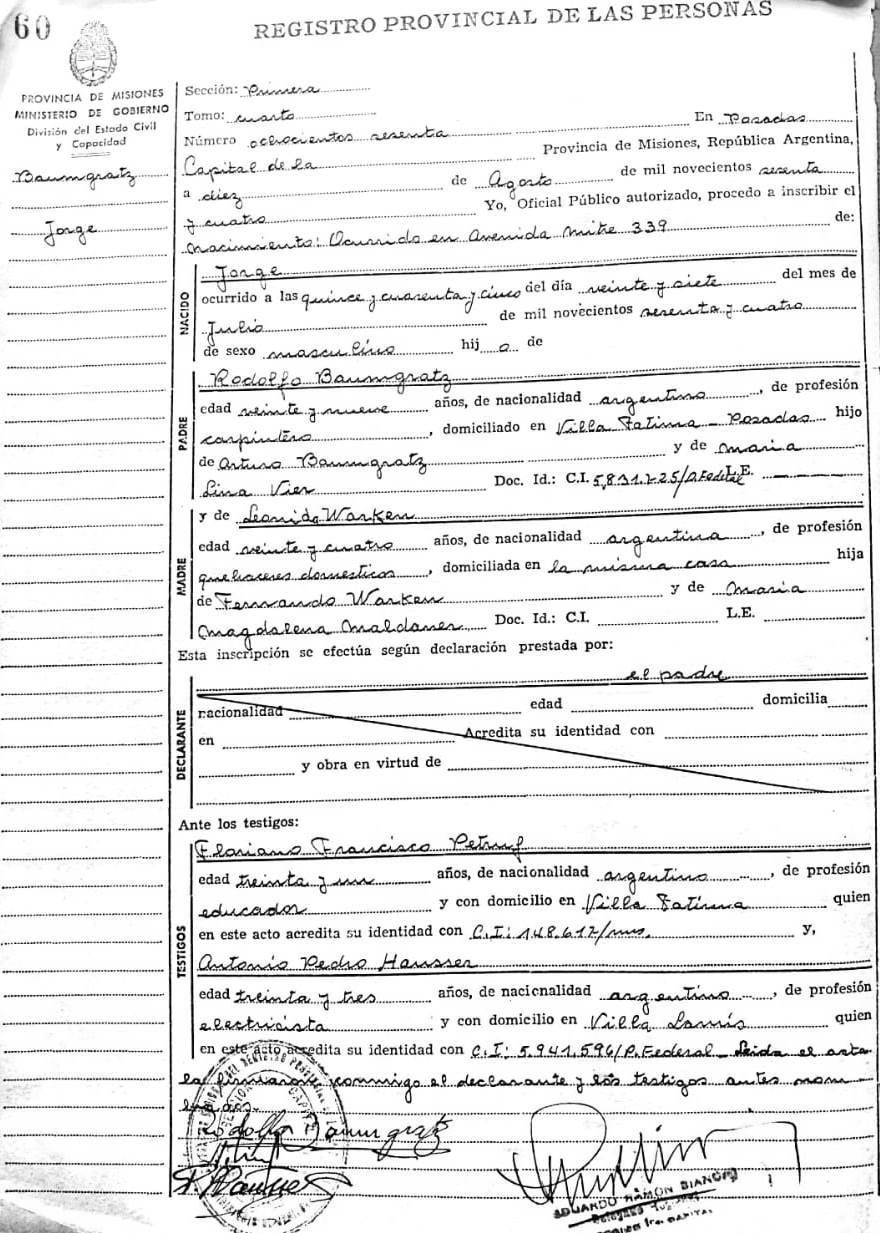 60
REGISTRO PROVINCIAL DE LAS PERSONAS
PROVINCIA DE MISIONES
MINISTERIO DE GOBIERNO
División del Estado Civil
y Capacidad
Baumgratz
Jorge
Sección: Primera
Tomo: cuarto
Número ochocientos sesenta En Posadas
Capital de la Provincia de Misiones, República Argentina,
a diez de Agosto de mil novecientos sesenta
y cuatro Yo, Oficial Público autorizado, procedo a inscribir el
nacimiento: Ocurrido en Avenida Mitre 339 de:
NACIDO
Jorge
ocurrido a las quince y cuarenta y cinco del día veinte y siete del mes de
Julio de mil novecientos sesenta y cuatro
de sexo masculino hij o de
PADRE
Rodolfo Baumgratz
edad veinte y nueve años, de nacionalidad argentino, de profesión
carpintero, domiciliado en Villa Fatima - Posadas hijo
de Arturo Baumgratz y de Maria
Lina Vier Doc. Id.: C.I. 5,831.225/P.Federal L.E.
MADRE
y de Leonida Warken
edad veinte y cuatro años, de nacionalidad argentina, de profesión
quehaceres domesticos, domiciliada en la misma casa hija
de Fernando Warken y de Maria
Magdalena Maldaner Doc. Id.: C.I. L.E.
Esta inscripción se efectúa según declaración prestada por:
el padre
DECLARANTE
nacionalidad edad domicilia
en Acredita su identidad con
y obra en virtud de
Ante los testigos:
TESTIGOS
Floriano Francisco
edad treinta y un años, de nacionalidad argentino, de profesión
educador y con domicilio en Villa Fatima quien
en este acto acredita su identidad con C.I: 148.612/mns. y,
Antonio Pedro Hausser
edad treinta y tres años, de nacionalidad argentino, de profesión
electricista y con domicilio en Villa Lanús quien
en este acto acredita su identidad con C.I: 5.941,596/P.Federal - Leida el acta
la firmaron conmigo el declarante y los testigos antes nom
brados.
Rodolfo Baumgratz
EDUARDO RAMON BIANCHI